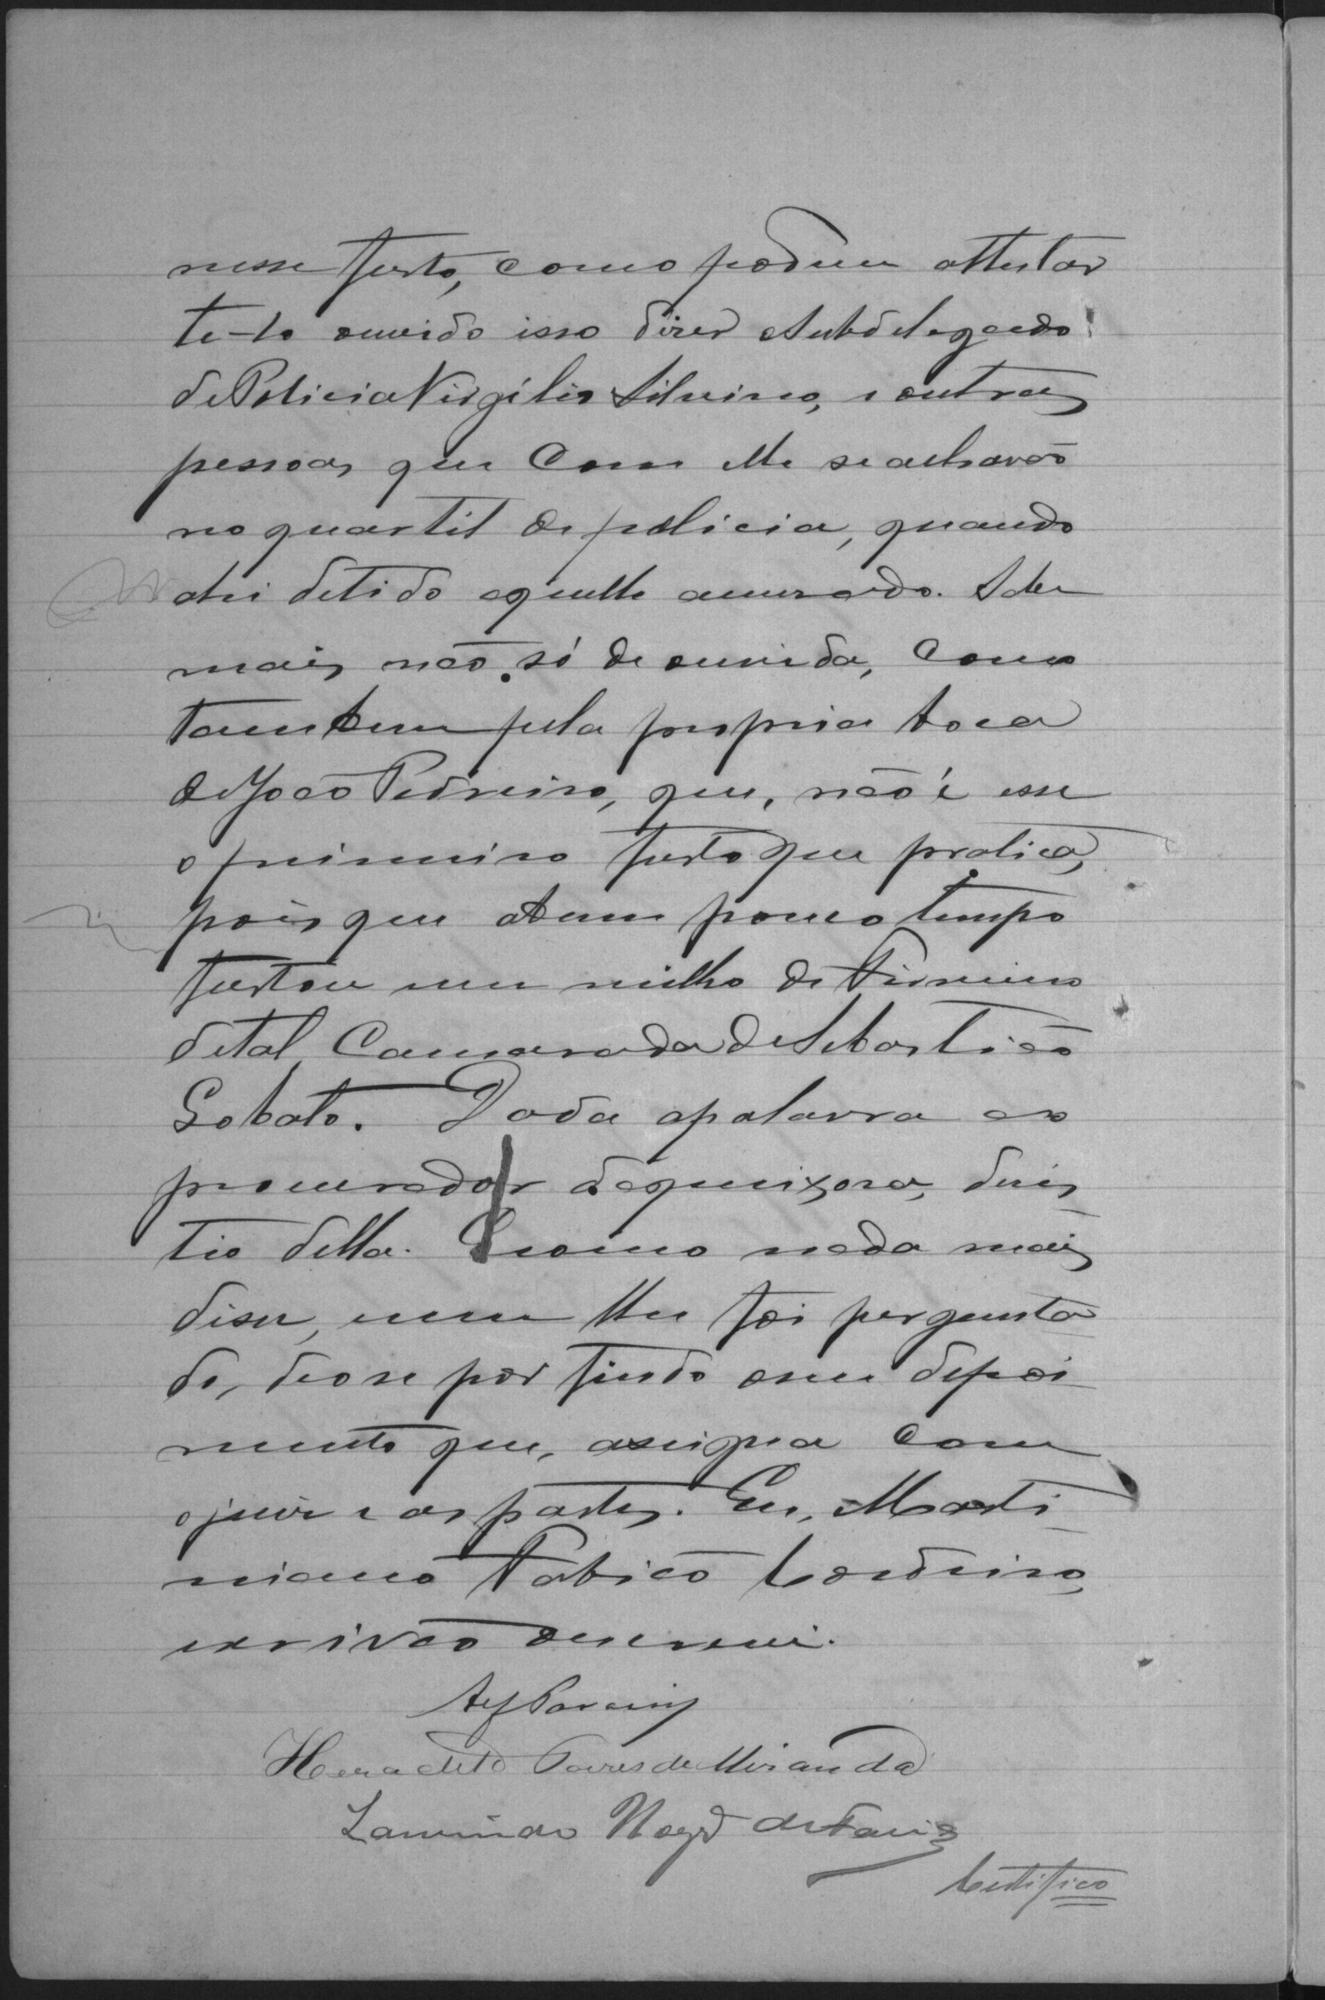 nesse furto, como podem attestar
te-lo ouvido isso dizer Subdelegado
de Policia Virgilio Silvino, e outras
pessoas que com elle se achavão
no quartel de policia, quando
ahi detido aquelle accusado. Sabe
mais não só de ouvida, como
tambem pela propria boca
de João Pedreiro, que, não é esse
o primeiro furto que pratica,
pois que a bem pouco tempo
furtou um milho de Firmino
de tal, camarada de Sebastião
Lobato. Dada a palavra ao
procurador da queixosa, desis-
tio della. E como nada mais
disse, nem lhe foi pergunta-
do, deo-se por findo o seu depoi-
mento que, assigna com
o juiz e as partes. Eu, Marti-
niano Fabião Cordeiro,
escrivão o escrevi.
Heraclito Paes de Miranda
de Faria
Certifico